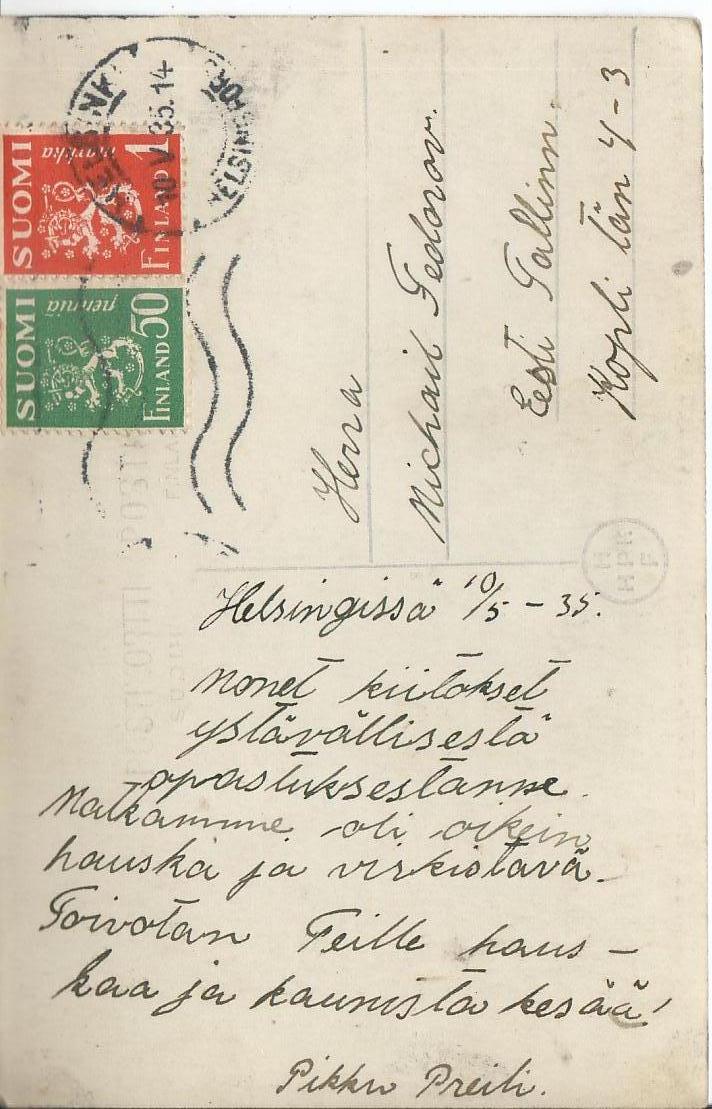 SUOMI
markka 1
FINLAND
SUOMI
penniä 50
FINLAND
10 V 35.14
Herra
Michail Fedorov.
Eesti Tallinn.
Kopli tän 4-3
Helsingissä 10/5 - 35.
Monet kiitokset
ystävällisestä
opastuksestanne.
Matkamme oli oikein
hauska ja virkistävä.
Toivotan Teille haus-
kaa ja kaunista kesää!
Pikku Preili.